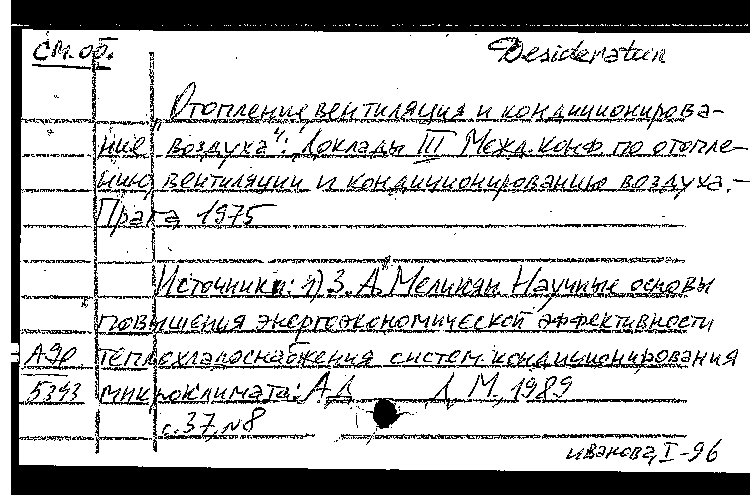 см. об. Desideratum
"Отопление вентиляция и кондиционирова-
ние воздуха": Доклады III Межд. конф. по отопле-
нию, вентиляции и кондиционированию воздуха. –
Прага, 1975
Источники: 1) З. А. Меликян. Научные основы
повышения энергоэкономической эффективности
А90 теплохладоснабжения систем кондиционирования
5343 микроклимата: АД Д М., 1989
с. 37, №8
иванова, I-96